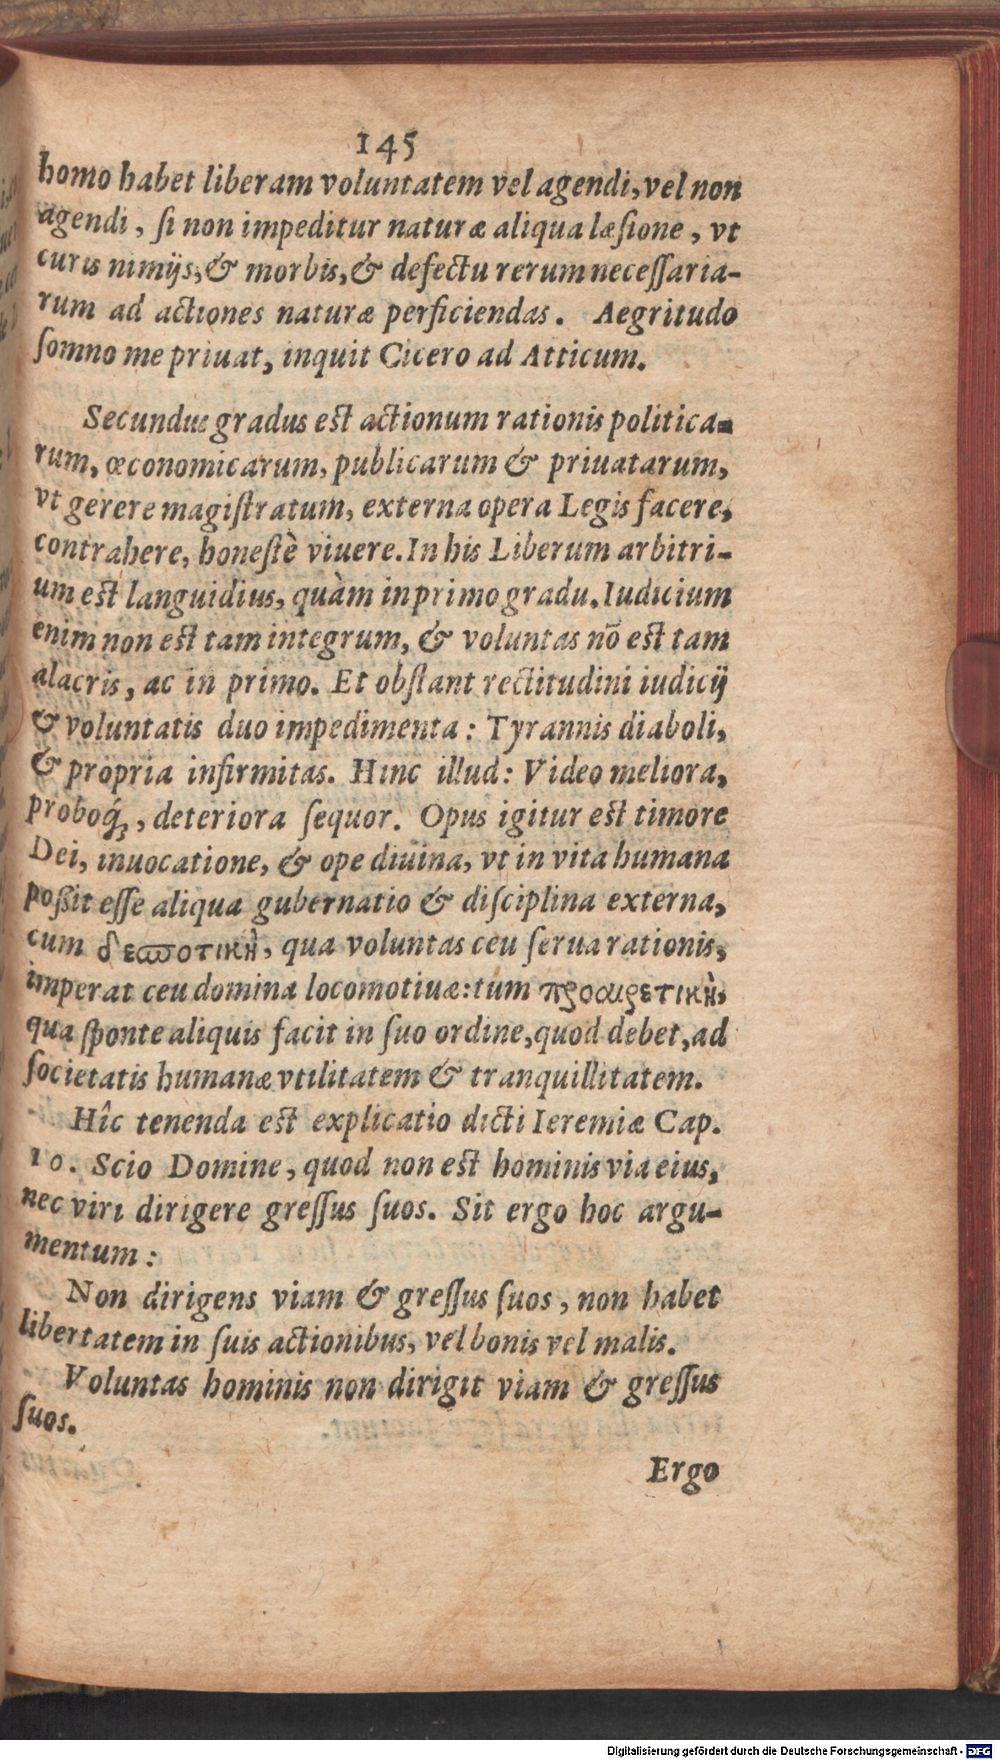 145
homo habet liberam voluntatem vel agendi, vel non
agendi, ſi non impeditur naturæ aliqua læſione, vt
curis nimijs, & morbis, & defectu rerum neceſſaria-
rum ad actiones naturæ perficiendas. Aegritudo
ſomno me priuat, inquit Cicero ad Atticum.
Secundus gradus est actionum rationis politica-
rum, œconomicarum, publicarum & priuatarum,
vt gerere magiſtratum, externa opera Legis facere,
contrahere, honeſtè viuere. In his Liberum arbitri-
um est languidius, quàm in primo gradu. Iudicium
enim non est tam integrum, & voluntas nō est tam
alacris, ac in primo. Et obſtant rectitudini iudicij
& voluntatis duo impedimenta: Tyrannis diaboli,
& propria infirmitas. Hinc illud: Video meliora,
proboq́ꝫ, deteriora ſequor. Opus igitur est timore
Dei, inuocatione, & ope diuina, vt in vita humana
poßit eſſe aliqua gubernatio & diſciplina externa,
cum δεσποτικὴ, qua voluntas ceu ſerua rationis,
imperat ceu domina locomotiuæ: tum προαιρετικὴ,
qua ſponte aliquis facit in ſuo ordine, quod debet, ad
ſocietatis humanæ vtilitatem & tranquillitatem.
Hîc tenenda est explicatio dicti Ieremiæ Cap.
10. Scio Domine, quod non est hominis via eius,
nec viri dirigere greſſus ſuos. Sit ergo hoc argu-
mentum:
Non dirigens viam & greſſus ſuos, non habet
libertatem in ſuis actionibus, vel bonis vel malis.
Voluntas hominis non dirigit viam & greſſus
ſuos.
Ergo
Digitalisierung gefördert durch die Deutsche Forschungsgemeinschaft - DFG